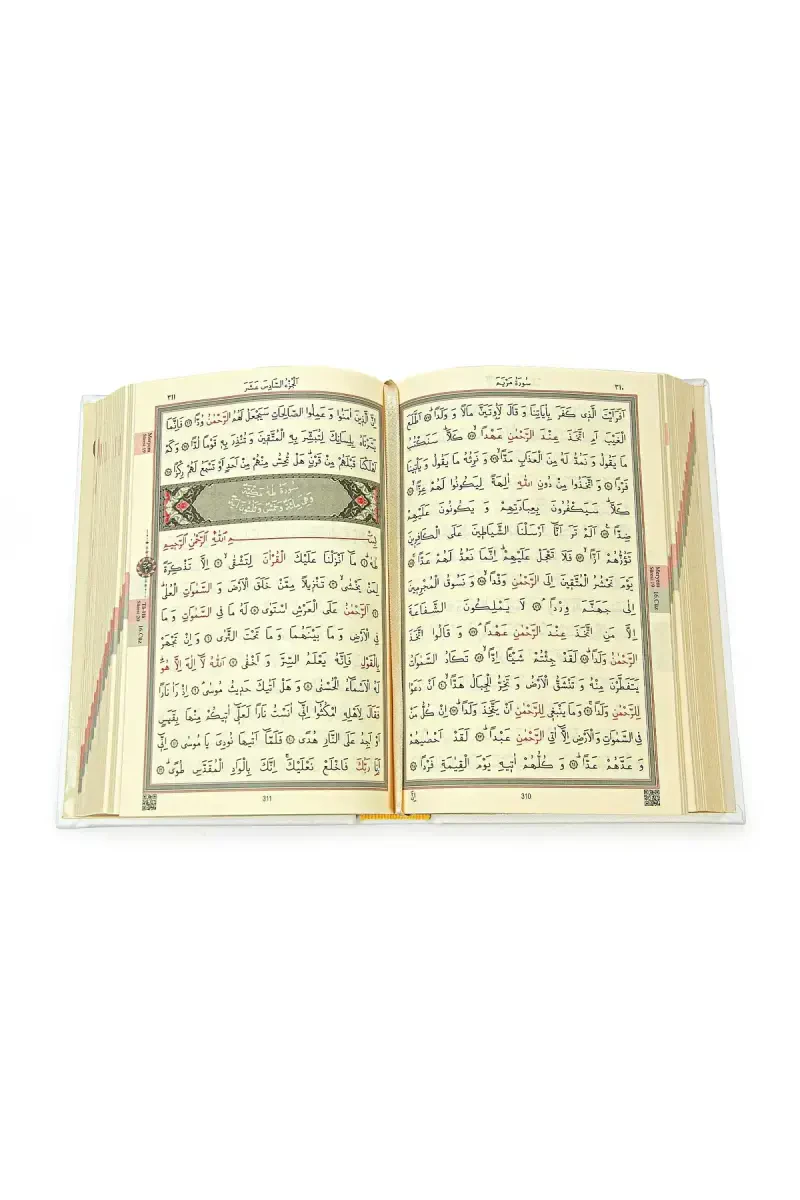 ٣١٠
سورة مريم
اَفَرَاَيْتَ الَّذٖي كَفَرَ بِاٰيَاتِنَا وَ قَالَ لَاُوتَيَنَّ مَالًا وَ وَلَدًاۜ ۝ اَطَّلَعَ
الْغَيْبَ اَمِ اتَّخَذَ عِنْدَ الرَّحْمٰنِ عَهْدًاۙ ۝ كَلَّاۜ سَنَكْتُبُ
مَا يَقُولُ وَ نَمُدُّ لَهُ مِنَ الْعَذَابِ مَدًّاۙ ۝ وَ نَرِثُهُ مَا يَقُولُ وَ يَأْتٖينَا
فَرْدًا ۝ وَ اتَّخَذُوا مِنْ دُونِ اللّٰهِ اٰلِهَةً لِيَكُونُوا لَهُمْ عِزًّاۙ ۝
كَلَّاۜ سَيَكْفُرُونَ بِعِبَادَتِهِمْ وَ يَكُونُونَ عَلَيْهِمْ
ضِدًّا۟ ۝ اَلَمْ تَرَ اَنَّٓا اَرْسَلْنَا الشَّيَاطٖينَ عَلَى الْكَافِرٖينَ
تَؤُزُّهُمْ اَزًّاۙ ۝ فَلَا تَعْجَلْ عَلَيْهِمْۜ اِنَّمَا نَعُدُّ لَهُمْ عَدًّاۚ ۝
يَوْمَ نَحْشُرُ الْمُتَّقٖينَ اِلَى الرَّحْمٰنِ وَفْدًاۙ ۝ وَ نَسُوقُ الْمُجْرِمٖينَ
اِلٰى جَهَنَّمَ وِرْدًاۢ ۝ لَا يَمْلِكُونَ الشَّفَاعَةَ
اِلَّا مَنِ اتَّخَذَ عِنْدَ الرَّحْمٰنِ عَهْدًاۢ ۝ وَ قَالُوا اتَّخَذَ
الرَّحْمٰنُ وَلَدًاۜ ۝ لَقَدْ جِئْتُمْ شَيْـًٔا اِدًّاۙ ۝ تَكَادُ السَّمٰوَاتُ
يَتَفَطَّرْنَ مِنْهُ وَ تَنْشَقُّ الْاَرْضُ وَ تَخِرُّ الْجِبَالُ هَدًّاۙ ۝ اَنْ دَعَوْا
لِلرَّحْمٰنِ وَلَدًاۚ ۝ وَ مَا يَنْبَغٖي لِلرَّحْمٰنِ اَنْ يَتَّخِذَ وَلَدًاۜ ۝ اِنْ كُلُّ مَنْ
فِي السَّمٰوَاتِ وَ الْاَرْضِ اِلَّٓا اٰتِي الرَّحْمٰنِ عَبْدًاۜ ۝ لَقَدْ اَحْصٰيهُمْ
وَ عَدَّهُمْ عَدًّاۜ ۝ وَ كُلُّهُمْ اٰتٖيهِ يَوْمَ الْقِيٰمَةِ فَرْدًا ۝
310
Meryem
Sûresi 19
16. Cüz
الجزء السادس عشر
٣١١
اِنَّ الَّذٖينَ اٰمَنُوا وَ عَمِلُوا الصَّالِحَاتِ سَيَجْعَلُ لَهُمُ الرَّحْمٰنُ وُدًّا ۝ فَاِنَّمَا
يَسَّرْنَاهُ بِلِسَانِكَ لِتُبَشِّرَ بِهِ الْمُتَّقٖينَ وَ تُنْذِرَ بِهٖ قَوْمًا لُدًّا ۝ وَ كَمْ
اَهْلَكْنَا قَبْلَهُمْ مِنْ قَرْنٍۜ هَلْ تُحِسُّ مِنْهُمْ مِنْ اَحَدٍ اَوْ تَسْمَعُ لَهُمْ رِكْزًا ۝
سورة طه مكية
وهي مائة وخمس وثلثون اية
بِسْمِ اللّٰهِ الرَّحْمٰنِ الرَّحٖيمِ
طٰهٰۜ ۝ مَٓا اَنْزَلْنَا عَلَيْكَ الْقُرْاٰنَ لِتَشْقٰىۙ ۝ اِلَّا تَذْكِرَةً
لِمَنْ يَخْشٰىۙ ۝ تَنْزٖيلًا مِمَّنْ خَلَقَ الْاَرْضَ وَ السَّمٰوَاتِ الْعُلٰىۜ
۝ اَلرَّحْمٰنُ عَلَى الْعَرْشِ اسْتَوٰى ۝ لَهُ مَا فِي السَّمٰوَاتِ وَ مَا
فِي الْاَرْضِ وَ مَا بَيْنَهُمَا وَ مَا تَحْتَ الثَّرٰى ۝ وَ اِنْ تَجْهَرْ
بِالْقَوْلِ فَاِنَّهُ يَعْلَمُ السِّرَّ وَ اَخْفٰى ۝ اَللّٰهُ لَٓا اِلٰهَ اِلَّا هُوَۜ
لَهُ الْاَسْمَٓاءُ الْحُسْنٰى ۝ وَ هَلْ اَتٰيكَ حَدٖيثُ مُوسٰىۢ ۝ اِذْ رَاٰ نَارًا
فَقَالَ لِاَهْلِهِ امْكُثُٓوا اِنّٖٓي اٰنَسْتُ نَارًا لَعَلّٖٓي اٰتٖيكُمْ مِنْهَا بِقَبَسٍ
اَوْ اَجِدُ عَلَى النَّارِ هُدًى ۝ فَلَمَّٓا اَتٰيهَا نُودِيَ يَا مُوسٰى ۝ اِنّٖٓي
اَنَا۬ رَبُّكَ فَاخْلَعْ نَعْلَيْكَۚ اِنَّكَ بِالْوَادِ الْمُقَدَّسِ طُوًىۜ ۝
311
Meryem
Sûresi 19
Tâ-Hâ
Sûresi 20
16. Cüz